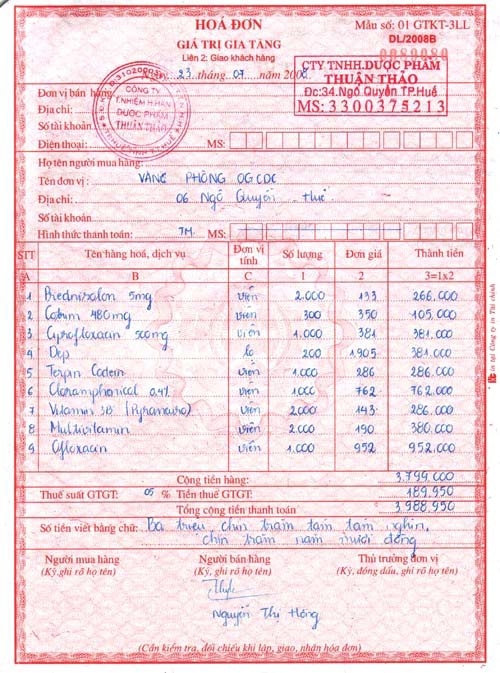 HOÁ ĐƠN
GIÁ TRỊ GIA TĂNG
Liên 2: Giao khách hàng
Mẫu số: 01 GTKT-3LL
DL/2008B
0089080
23 tháng 07 năm 2008
CTY TNHH.DƯỢC PHẨM
THUẬN THẢO
Đc:34.Ngô Quyền TP.Huế
MS: 3300375213
CÔNG TY
T.NHIỆM H.HẠN
DƯỢC PHẨM
THUẬN THẢO
Đơn vị bán hàng
Địa chỉ:
Số tài khoản
Điện thoại: MS:
Họ tên người mua hàng:
Tên đơn vị: VĂNG PHÒNG OGCDC
Địa chỉ: 06 Ngô Quyền Huế
Số tài khoản
Hình thức thanh toán: TM. MS:
STT Tên hàng hoá, dịch vụ Đơn vị tính Số lượng Đơn giá Thành tiền
A B C 1 2 3=1x2
1 Prednisolon 5mg viên 2.000 133 266.000
2 Cotrim 480mg viên 300 350 105.000
3 Ciprofloxacin 500mg viên 1.000 381 381.000
4 Dep lọ 200 1.905 381.000
5 Terpin Codein viên 1.000 286 286.000
6 Cloramphonical 0,4% viên 1.000 762 762.000
7 Vitamin 3B viên 2.000 143 286.000
8 Multivitamin viên 2.000 190 380.000
9 Ofloxacin viên 1.000 952 952.000
Cộng tiền hàng: 3.799.000
Thuế suất GTGT: 05 % Tiền thuế GTGT: 189.950
Tổng cộng tiền thanh toán 3.988.950
Số tiền viết bằng chữ: Ba triệu, chín trăm tám tám nghìn,
chín trăm năm mươi đồng
Người mua hàng Người bán hàng Thủ trưởng đơn vị
(Ký, ghi rõ họ tên) (Ký, ghi rõ họ tên) (Ký, đóng dấu, ghi rõ họ tên)
Nguyễn Thị Hồng
(Cần kiểm tra, đối chiếu khi lập, giao, nhận hóa đơn)